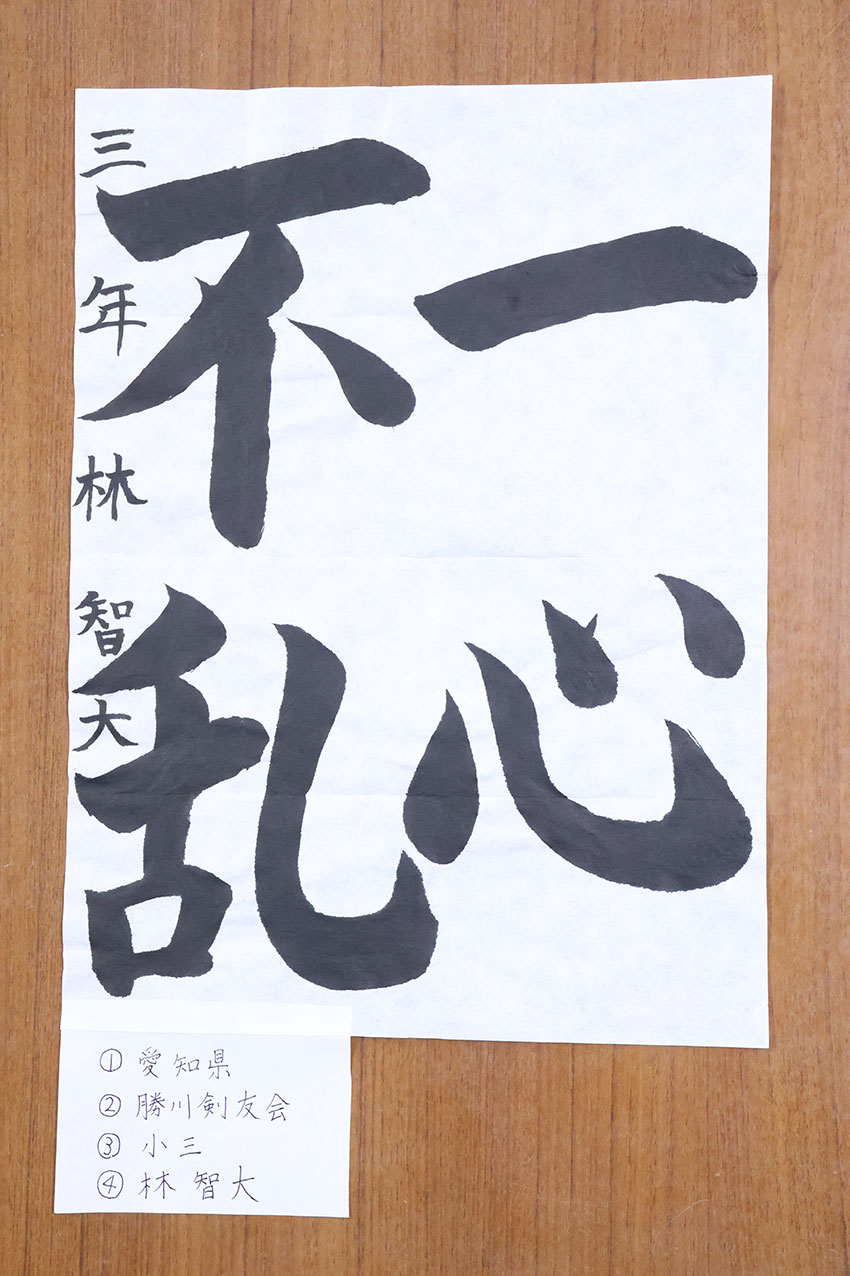 一心
不乱
三年 林 智大
① 愛知県
② 勝川剣友会
③ 小三
④ 林 智大